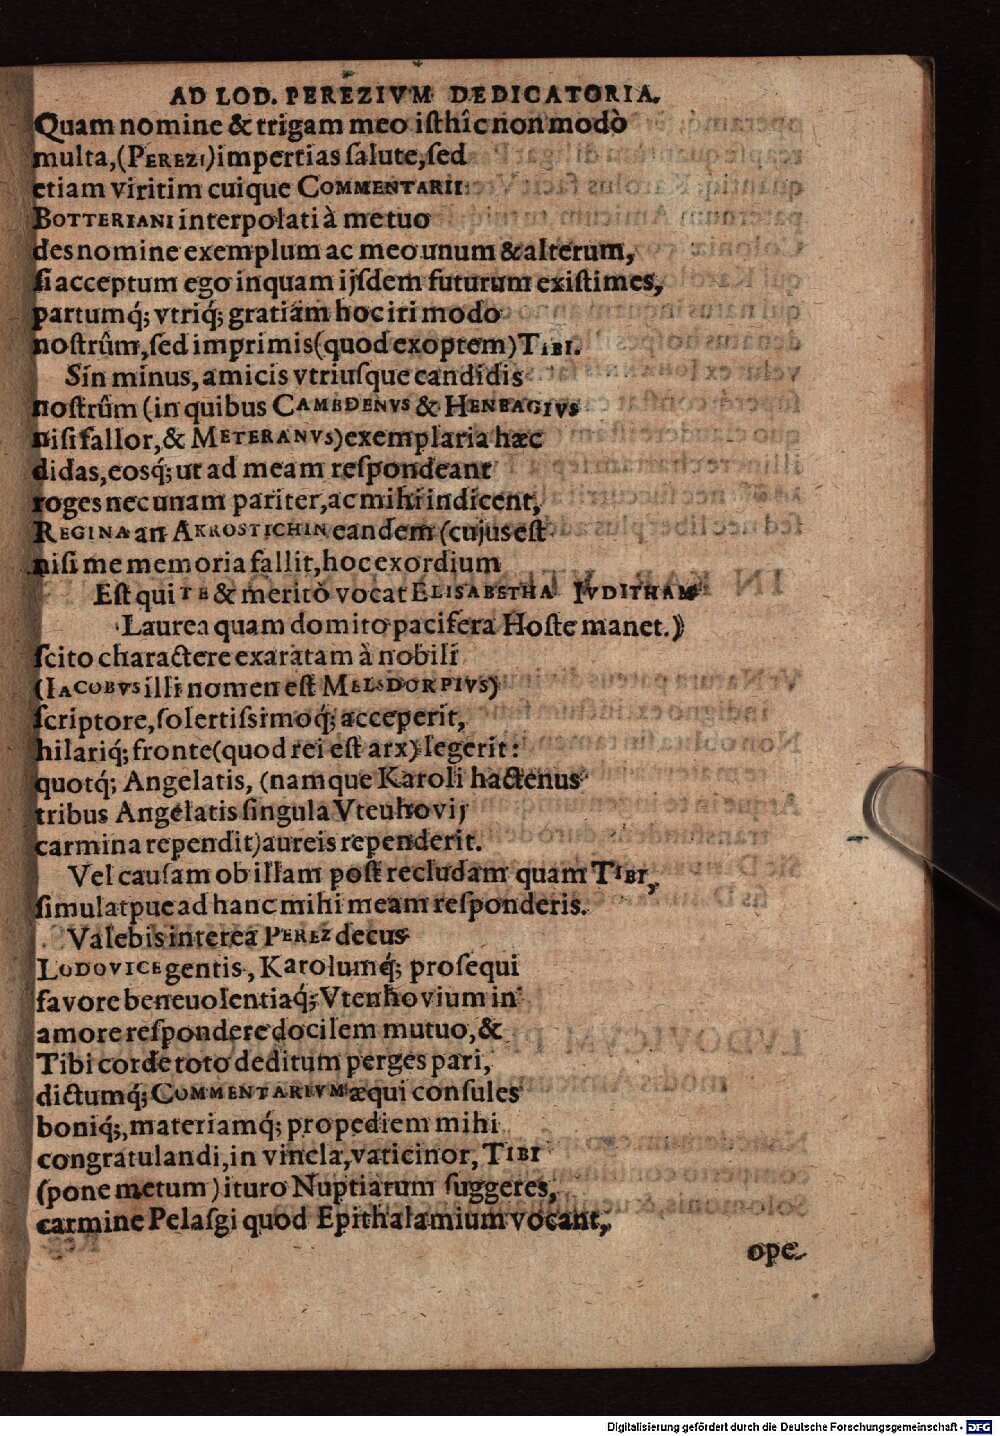 AD LOD. PEREZIVM DEDICATORIA.
Quam nomine & trigam meo isthîc non modò
multa, (PEREZI) impertias salute, sed
etiam viritim cuique COMMENTARII
BOTTERIANI interpolati à me tuo
des nomine exemplum ac meo unum & alterum,
si acceptum ego inquam ijsdem futurum existimes,
partumq́; vtriq́; gratiam hoc iri modo
nostrûm, sed imprimis (quod exoptem) TIBI.
Sin minus, amicis vtriusque candidis
nostrûm (in quibus CAMBDENVS & HENEAGIVS
nisi fallor, & METERANVS) exemplaria hæc
didas, eosq́; ut ad meam respondeant
roges nec unam pariter, ac mihi indicent,
REGINA an AKROSTICHIN eandem (cujus est
nisi me memoria fallit, hoc exordium
Est qui TE & meritò vocat ELISABETHA IVDITHAM
Laurea quam domito pacifera Hoste manet.)
scito charactere exaratam à nobili
(IACOBVS illi nomen est MELSDORPIVS)
scriptore, solertissimoq́; acceperit,
hilariq́; fronte (quod rei est arx) legerit:
quotq́; Angelatis, (namque Karoli hactenus
tribus Angelatis singula Vteuhovij
carmina rependit) aureis rependerit.
Vel causam ob illam post recludam quam TIBI,
simulatque ad hanc mihi meam responderis.
Valebis interea PEREZ decus
LODOVICE gentis, Karolumq́; prosequi
favore beneuolentiaq́; Vtenhovium in
amore respondere docilem mutuo, &
Tibi corde toto deditum perges pari,
dictumq́; COMMENTARIVM æqui consules
boniq́;, materiamq́; propediem mihi
congratulandi, in vincla, vaticinor, TIBI
(pone metum) ituro Nuptiarum suggeres,
carmine Pelasgi quod Epithalamium vocant,
ope
Digitalisierung gefördert durch die Deutsche Forschungsgemeinschaft - DFG